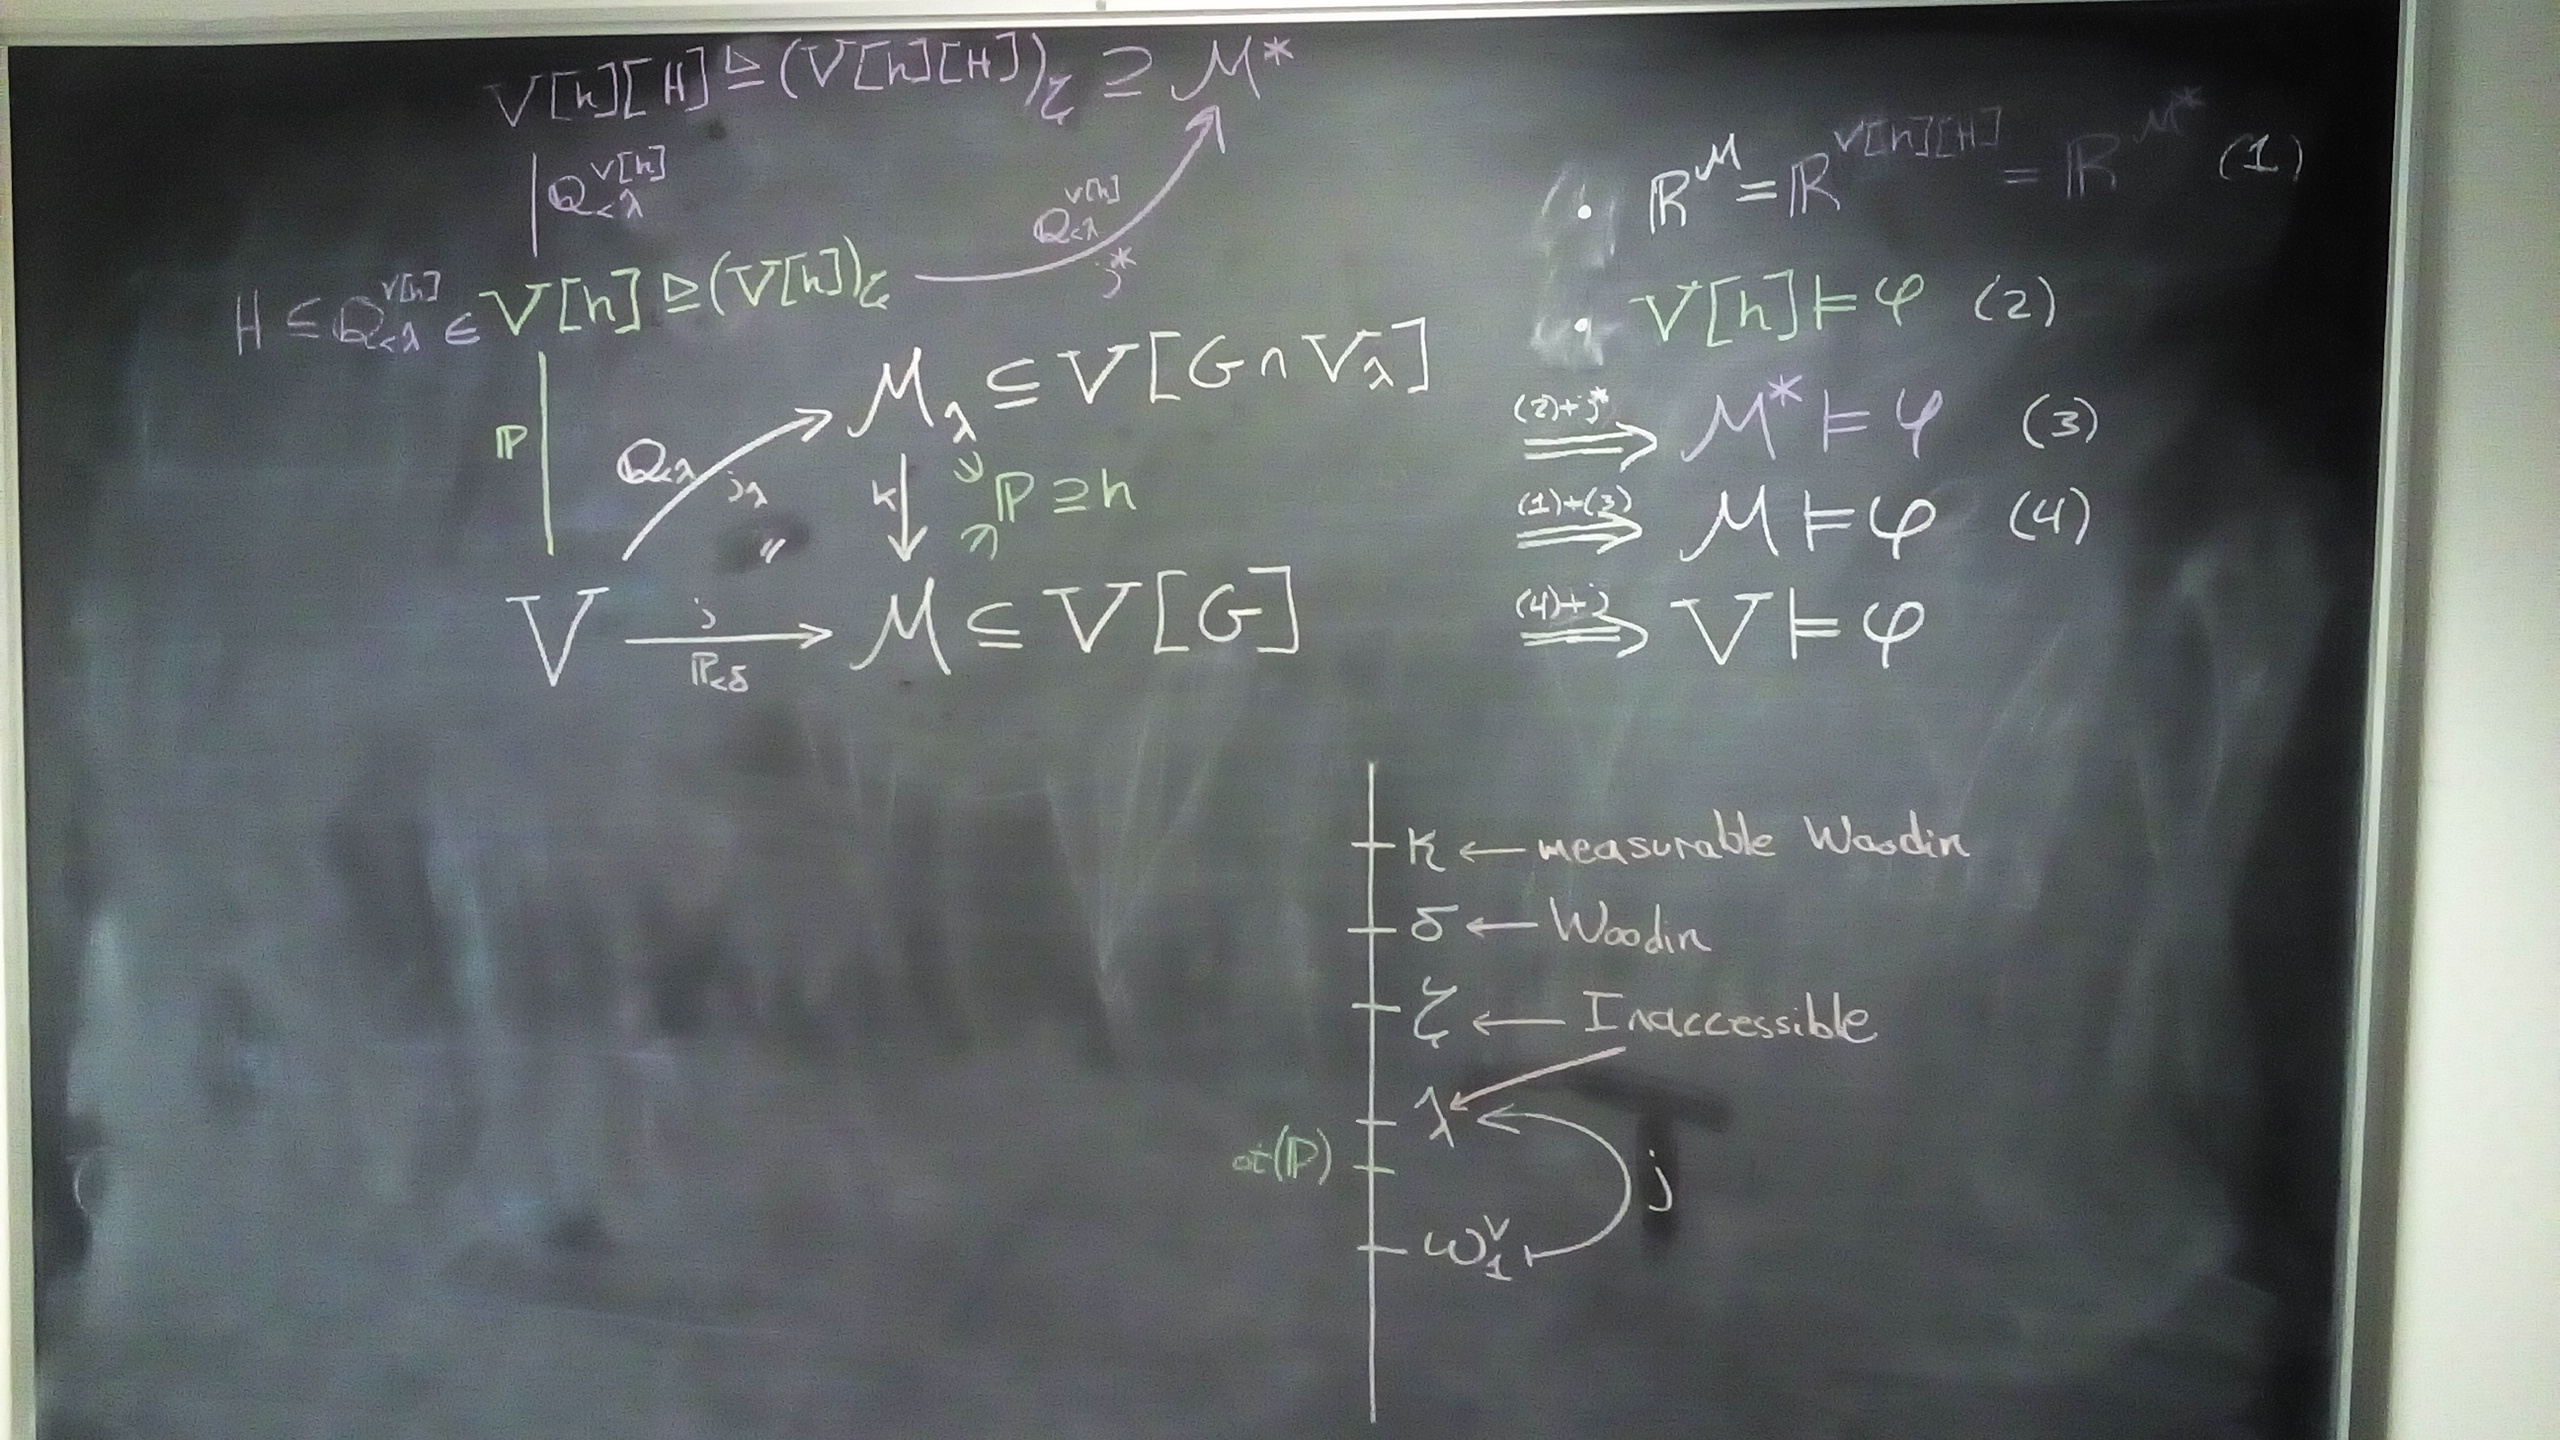 V[h][H] ⊵ (V[h][H])_ζ ⊇ M*
| ℚ_{<λ}^{V[h]}
ℚ_{<λ}^{V[h]} j*
H ⊆ ℚ_{<λ}^{V[h]} ∈ V[h] ⊵ (V[h])_ζ
ℙ
M_λ ⊆ V[G ∩ V_λ]
ℚ_{<λ} j_λ
k ↓ ℙ ⊇ h
V —j→ M ⊆ V[G]
ℙ_{<δ}
• ℝ^M = ℝ^{V[h][H]} = ℝ^{M*} (1)
• V[h] ⊨ φ (2)
(2)+j* ⟹ M* ⊨ φ (3)
(1)+(3) ⟹ M ⊨ φ (4)
(4)+j ⟹ V ⊨ φ
κ ← measurable Woodin
δ ← Woodin
ζ ← Inaccessible
λ
ot(ℙ)
j
ω_1^V